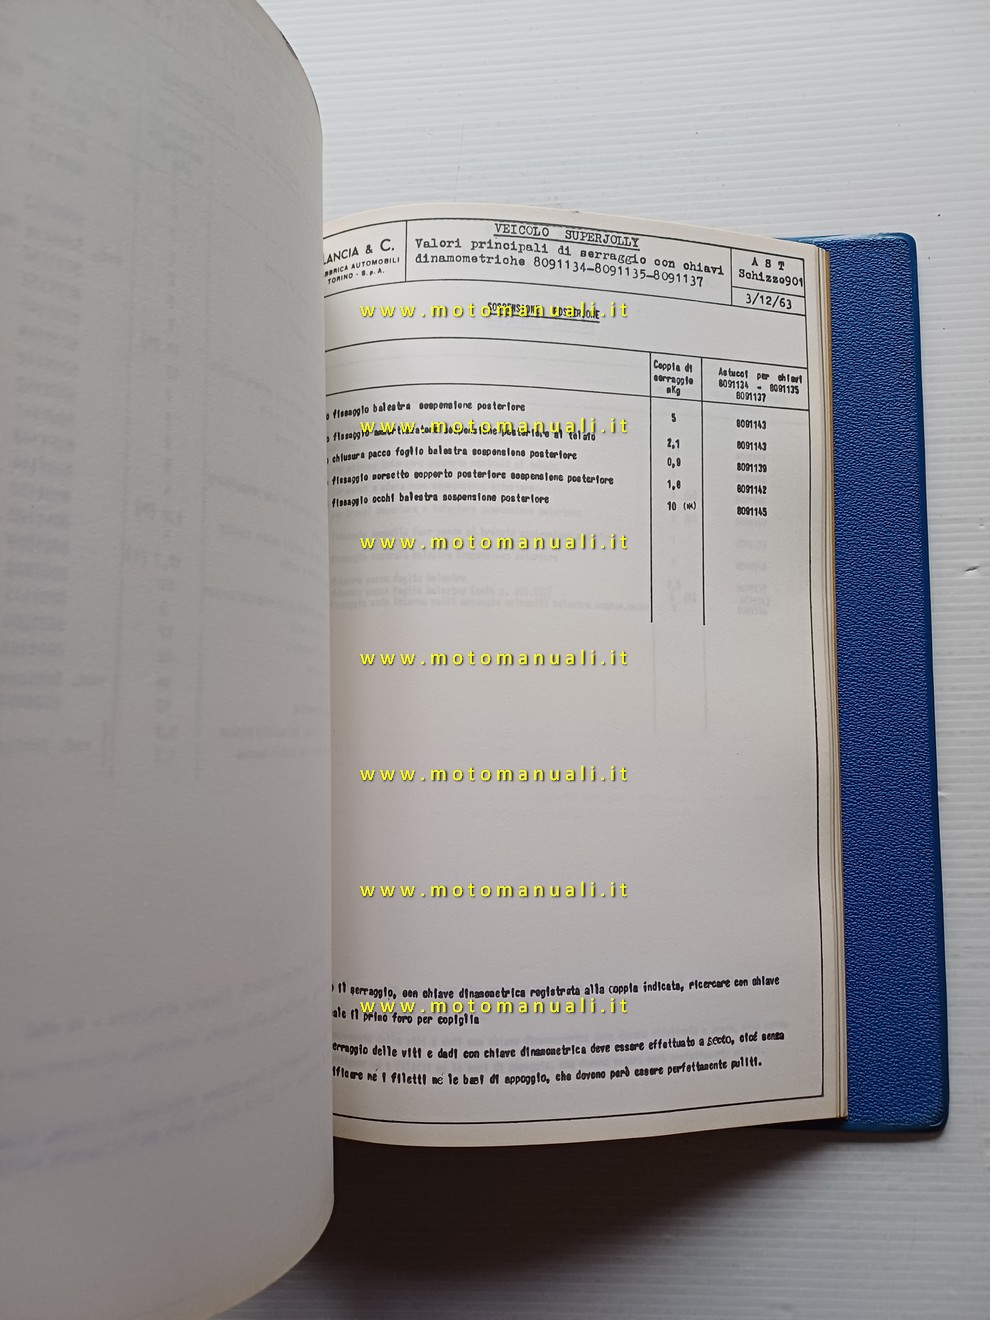 LANCIA & C.
FABBRICA AUTOMOBILI
TORINO - S.p.A.
VEICOLO SUPERJOLLY
Valori principali di serraggio con chiavi
dinamometriche 8091134-8091135-8091137
A S T
Schizzo901
3/12/63
SOSPENSIONE POSTERIORE
www.motomanuali.it
Coppia di
serraggio
mKg
Astucci per chiavi
8091134 - 8091135
8091137
fissaggio balestra sospensione posteriore 5 8091143
www.motomanuali.it
fissaggio ammortizzatore sospensione posteriore al telaio 2,1 8091143
chiusura pacco foglie balestra sospensione posteriore 0,9 8091139
fissaggio morsetto supporto posteriore sospensione posteriore 1,8 8091142
fissaggio occhi balestra sospensione posteriore 10 (**) 8091145
www.motomanuali.it
www.motomanuali.it
www.motomanuali.it
www.motomanuali.it
il serraggio, con chiave dinamometrica registrata alla coppia indicata, ricercare con chiave
www.motomanuali.it
il primo foro per copiglia
serraggio delle viti e dadi con chiave dinamometrica deve essere effettuato a secco, cioé senza
né i filetti né le basi di appoggio, che devono però essere perfettamente puliti.